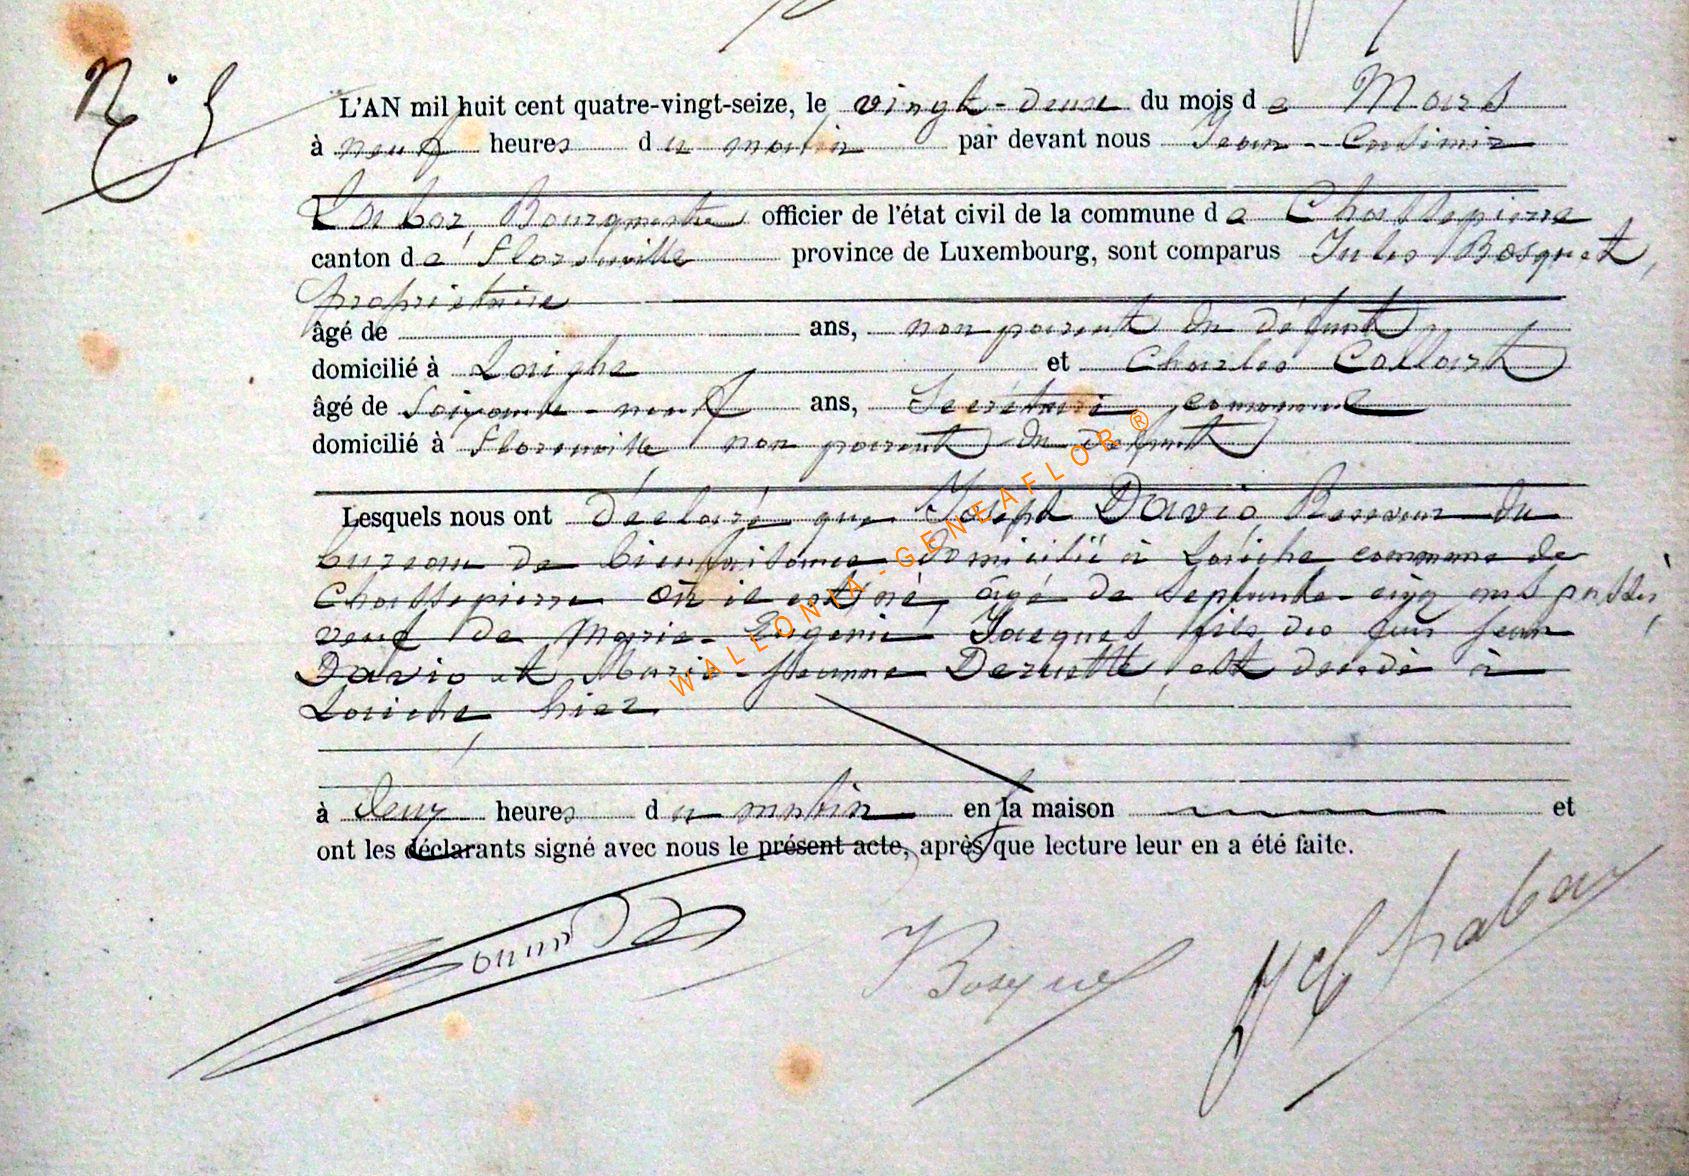 N° 5
L'AN mil huit cent quatre-vingt-seize, le vingt-deux du mois de Mars
à neuf heures du matin par devant nous Jean-Casimir
Labar, Bourgmestre officier de l'état civil de la commune de Chassepierre
canton de Florenville province de Luxembourg, sont comparus Jules Bosquet,
propriétaire
âgé de ans, non parent du défunt
domicilié à Laiche et Charles Collart
âgé de Soixante-neuf ans, Secrétaire communal
domicilié à Florenville non parent du défunt
Lesquels nous ont déclaré que Joseph Davio Receveur du
bureau de bienfaisance domicilié à Laiche commune de
Chassepierre où il est né, âgé de septante-cinq ans passés,
veuf de Marie-Eugénie Jacques fils des feus Jean
Davio et Marie-Jeanne est décédé à
Laiche, hier
à deux heures du matin en la maison et
ont les déclarants signé avec nous le présent acte, après que lecture leur en a été faite.
Bosquet
Labar
WALLONIA-GENEAFLOR®